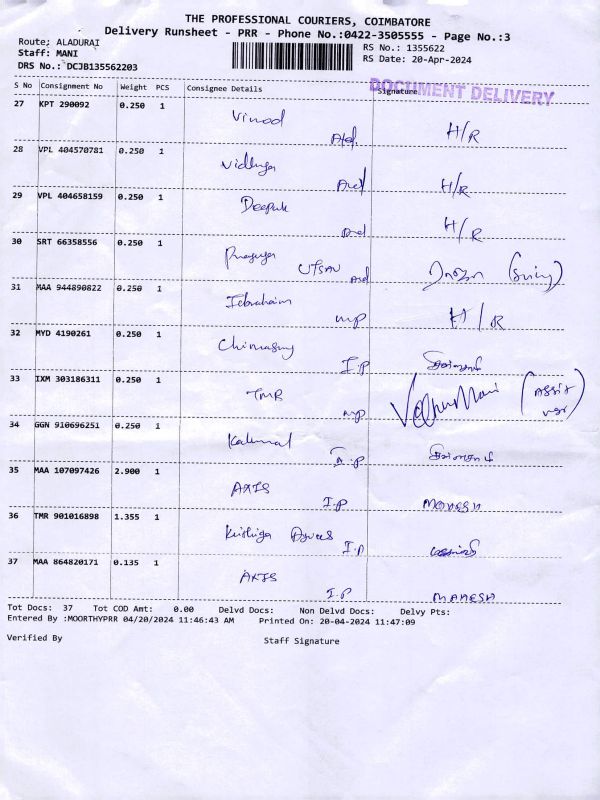 THE PROFESSIONAL COURIERS, COIMBATORE
Delivery Runsheet - PRR - Phone No.:0422-3505555 - Page No.:3
Route: ALADURAI
Staff: MANI
DRS No.: DCJB135562203
RS No.: 1355622
RS Date: 20-Apr-2024
DOCUMENT DELIVERY
S No Consignment No Weight PCS Consignee Details Signature
27 KPT 290092 0.250 1
Vinod H/R
28 VPL 404570781 0.250 1
H/R
29 VPL 404658159 0.250 1
Deepak H/R
30 SRT 66358556 0.250 1
UTSAV
31 MAA 944890822 0.250 1
Iebraheim MP H/R
32 MYD 4190261 0.250 1
I.P
33 IXM 303186311 0.250 1
TMB MP
34 GGN 910696251 0.250 1
I.P
35 MAA 107097426 2.900 1
AXIS I.P
36 TMR 901016898 1.355 1
I.P
37 MAA 864820171 0.135 1
AXIS I.P MAHESH
Tot Docs: 37 Tot COD Amt: 0.00 Delvd Docs: Non Delvd Docs: Delvy Pts:
Entered By :MOORTHYPRR 04/20/2024 11:46:43 AM Printed On: 20-04-2024 11:47:09
Verified By Staff Signature